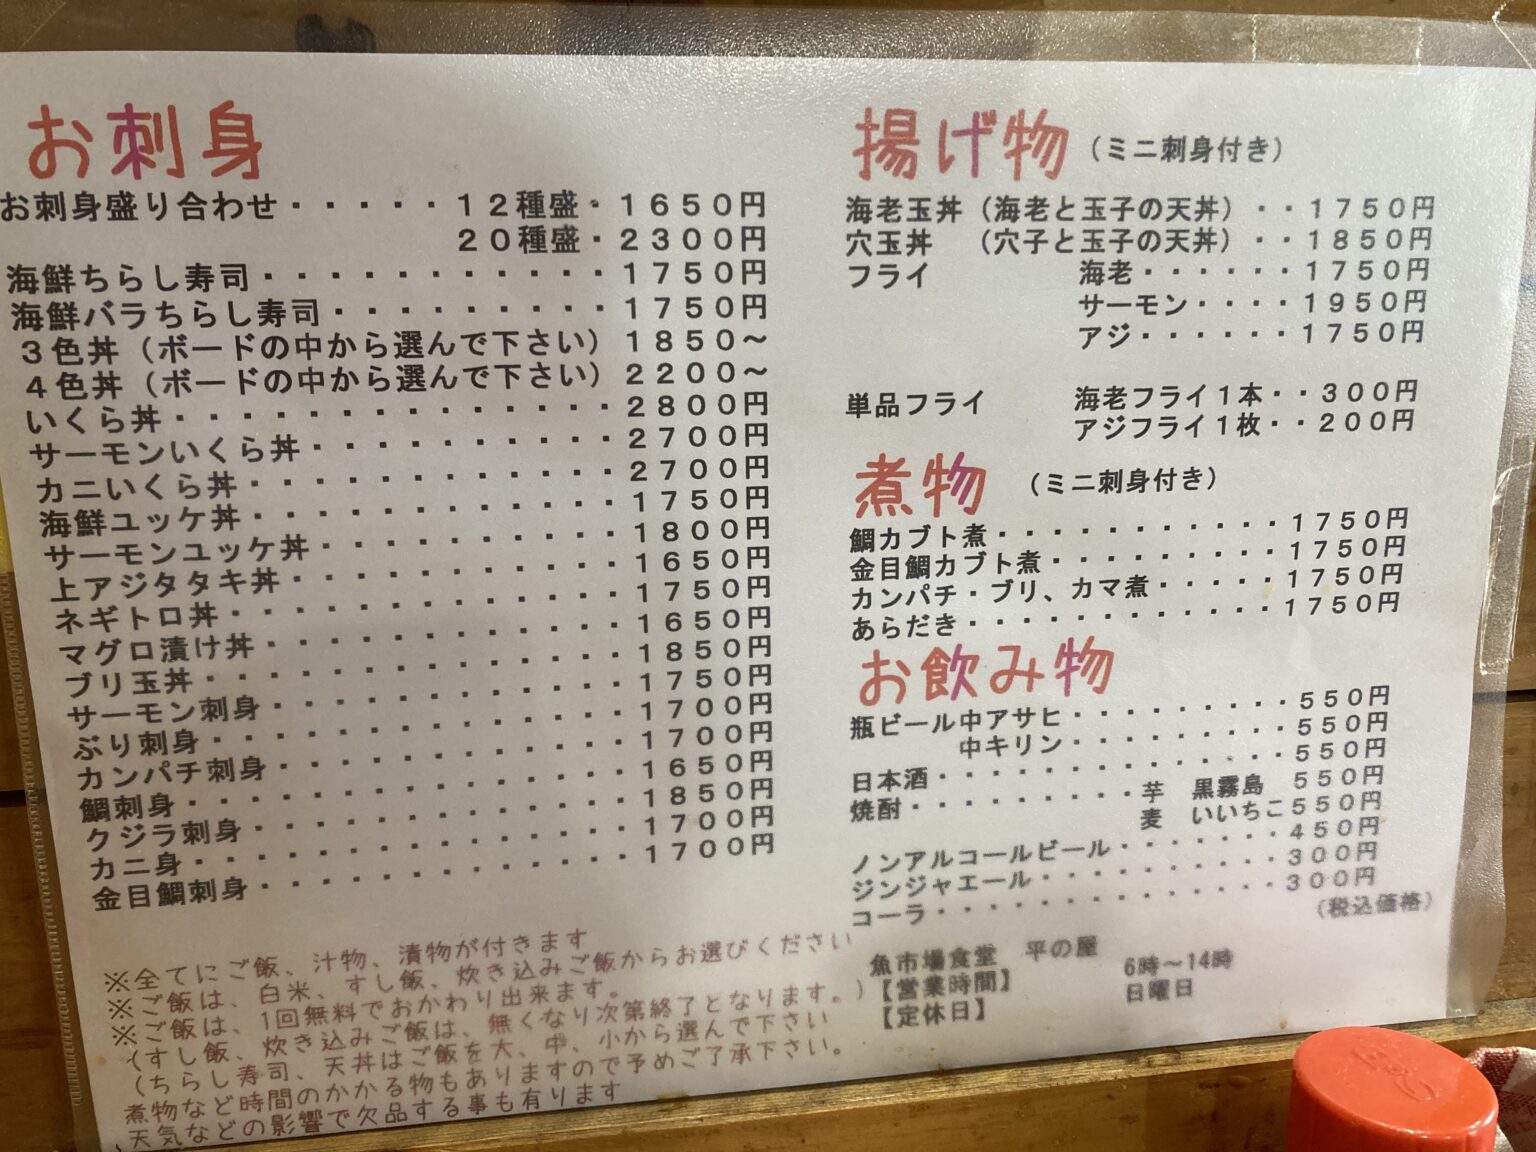 お刺身
お刺身盛り合わせ・・・・・12種盛・1650円
20種盛・2300円
海鮮ちらし寿司・・・・・・・・・・1750円
海鮮バラちらし寿司・・・・・・・・1750円
3色丼（ボードの中から選んで下さい）1850～
4色丼（ボードの中から選んで下さい）2200～
いくら丼・・・・・・・・・・・・・2800円
サーモンいくら丼・・・・・・・・・2700円
カニいくら丼・・・・・・・・・・・2700円
海鮮ユッケ丼・・・・・・・・・・・1750円
サーモンユッケ丼・・・・・・・・・1800円
上アジタタキ丼・・・・・・・・・・1650円
ネギトロ丼・・・・・・・・・・・・1750円
マグロ漬け丼・・・・・・・・・・・1650円
ブリ玉丼・・・・・・・・・・・・・1850円
サーモン刺身・・・・・・・・・・・1750円
ぶり刺身・・・・・・・・・・・・・1700円
カンパチ刺身・・・・・・・・・・・1700円
鯛刺身・・・・・・・・・・・・・・1650円
クジラ刺身・・・・・・・・・・・・1850円
カニ身・・・・・・・・・・・・・・1700円
金目鯛刺身・・・・・・・・・・・・1700円
※全てにご飯、汁物、漬物が付きます
※ご飯は、白米、すし飯、炊き込みご飯からお選びください
※ご飯は、1回無料でおかわり出来ます。
（すし飯、炊き込みご飯は、無くなり次第終了となります。）
（ちらし寿司、天丼はご飯を大、中、小から選んで下さい
煮物など時間のかかる物もありますので予めご了承下さい。
天気などの影響で欠品する事も有ります
揚げ物（ミニ刺身付き）
海老玉丼（海老と玉子の天丼）・・1750円
穴玉丼　（穴子と玉子の天丼）・・1850円
フライ　海老・・・・・・1750円
サーモン・・・・1950円
アジ・・・・・・1750円
単品フライ　海老フライ1本・・300円
アジフライ1枚・・200円
煮物（ミニ刺身付き）
鯛カブト煮・・・・・・・・・・・1750円
金目鯛カブト煮・・・・・・・・・1750円
カンパチ・ブリ、カマ煮・・・・・1750円
あらだき・・・・・・・・・・・・1750円
お飲み物
瓶ビール中アサヒ・・・・・・・・・550円
中キリン・・・・・・・・・550円
日本酒・・・・・・・・・・・・・・550円
焼酎・・・・・・・・・芋　黒霧島　550円
麦　いいちこ550円
ノンアルコールビール・・・・・・・450円
ジンジャエール・・・・・・・・・・300円
コーラ・・・・・・・・・・・・・・300円
（税込価格）
魚市場食堂　平の屋
【営業時間】　6時～14時
【定休日】　日曜日